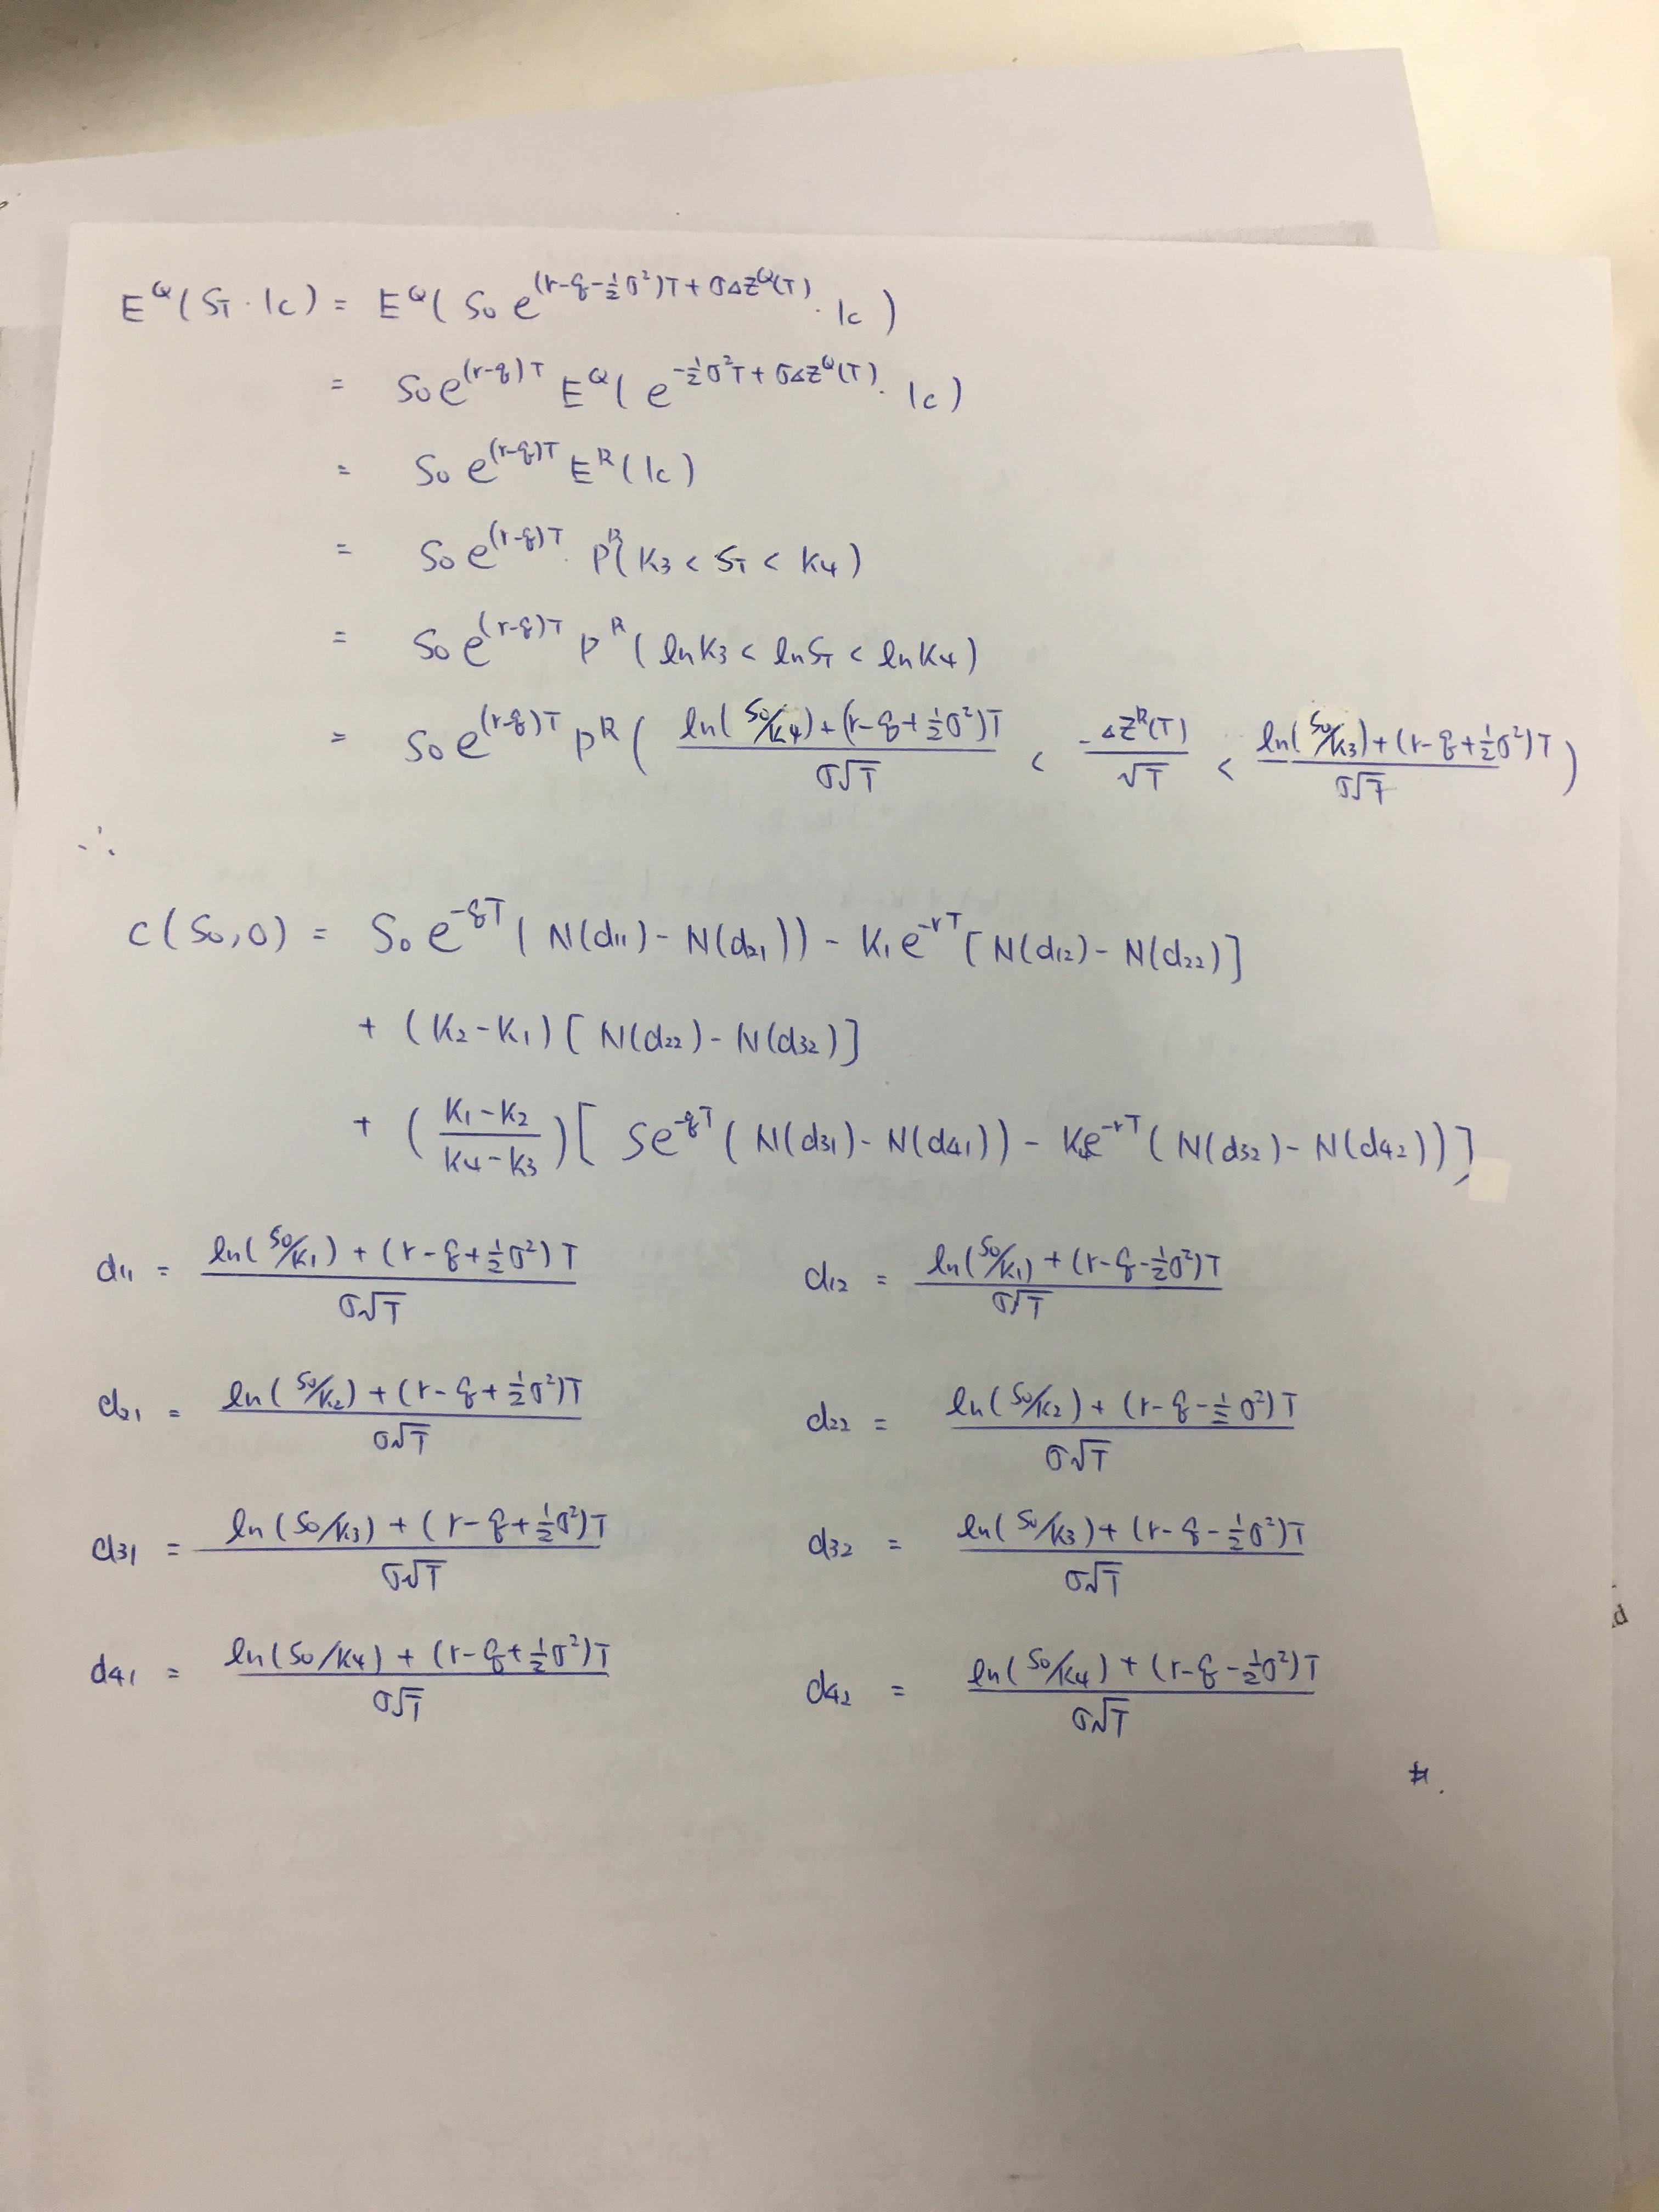 E^Q(S_T · 1_C) = E^Q(S_0 e^{(r-q-½σ²)T + σΔZ^Q(T)} · 1_C)
= S_0 e^{(r-q)T} E^Q(e^{-½σ²T + σΔZ^Q(T)} · 1_C)
= S_0 e^{(r-q)T} E^R(1_C)
= S_0 e^{(r-q)T} · P^R(K_3 < S_T < K_4)
= S_0 e^{(r-q)T} P^R(ln K_3 < ln S_T < ln K_4)
= S_0 e^{(r-q)T} P^R( (ln(S_0/K_4) + (r-q+½σ²)T) / (σ√T) < -ΔZ^R(T) / √T < (ln(S_0/K_3) + (r-q+½σ²)T) / (σ√T) )
∴
C(S_0, 0) = S_0 e^{-qT} (N(d_11) - N(d_21)) - K_1 e^{-rT} [N(d_12) - N(d_22)]
+ (K_2 - K_1) [N(d_22) - N(d_32)]
+ ((K_1 - K_2) / (K_4 - K_3)) [S e^{-qT} (N(d_31) - N(d_41)) - K_4 e^{-rT} (N(d_32) - N(d_42))]
d_11 = (ln(S_0/K_1) + (r-q+½σ²)T) / (σ√T) d_12 = (ln(S_0/K_1) + (r-q-½σ²)T) / (σ√T)
d_21 = (ln(S_0/K_2) + (r-q+½σ²)T) / (σ√T) d_22 = (ln(S_0/K_2) + (r-q-½σ²)T) / (σ√T)
d_31 = (ln(S_0/K_3) + (r-q+½σ²)T) / (σ√T) d_32 = (ln(S_0/K_3) + (r-q-½σ²)T) / (σ√T)
d_41 = (ln(S_0/K_4) + (r-q+½σ²)T) / (σ√T) d_42 = (ln(S_0/K_4) + (r-q-½σ²)T) / (σ√T)
#.